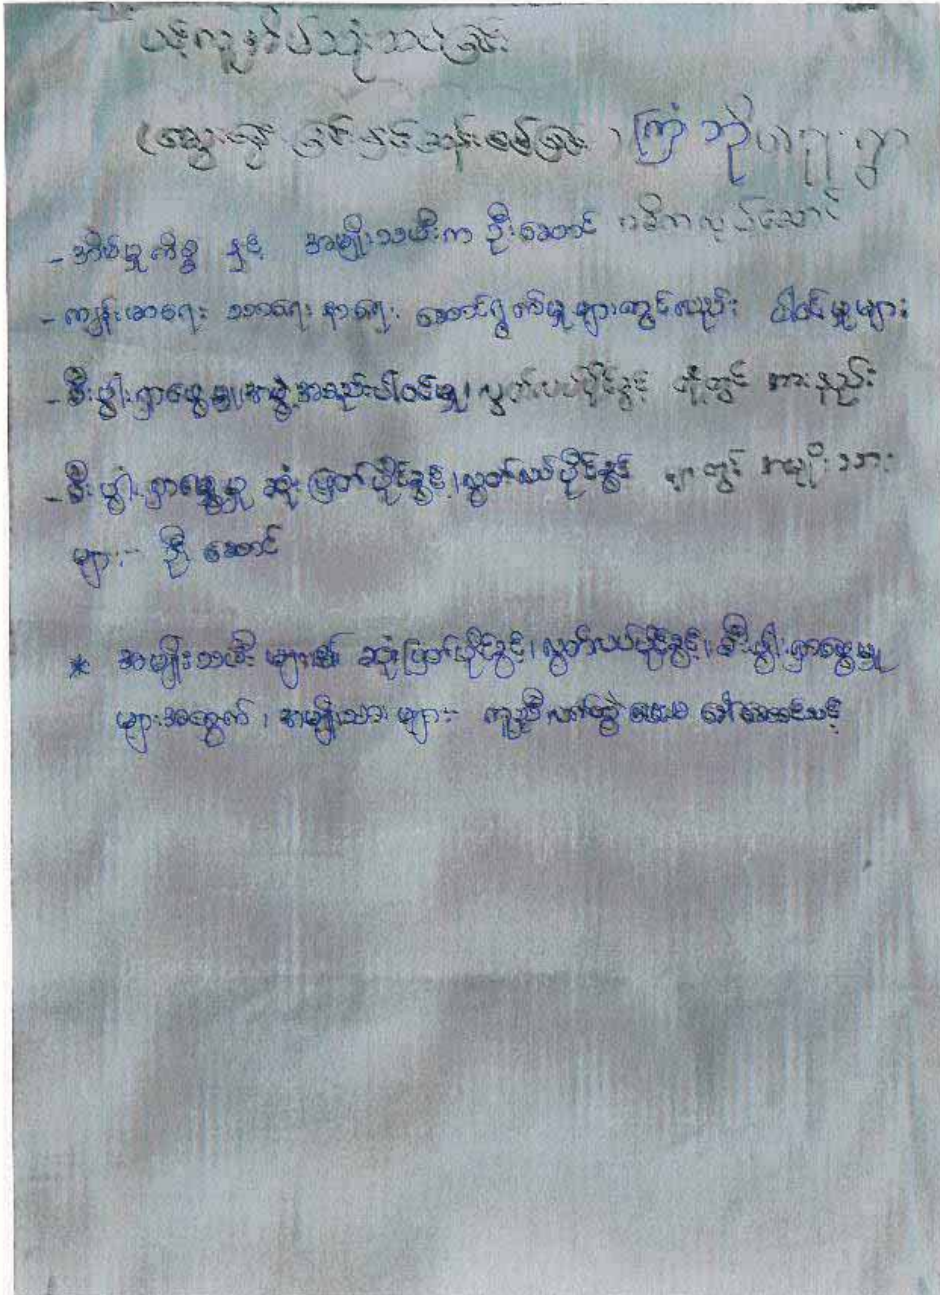 ပန်းလျှန်ပ်သုံးသပ်ခြင်း
(ဆွေးနွေး ခြင်း မြင်သုန်းစမ်ခြင်း) ကြံဘိုဟဥူးရွာ
- အိမ်မှုကိစ္စ နှင့် အမျိုးသမီးက ဦးဆောင် အဓိကလုပ်ဆောင်
- ကျန်းမာရေး သာရေးနာရေး ဆောင်ရွက်မှုများတွင်လည်း ပါဝင်မှုများ
- စီးပွါးရှာဖွေမှု၊ အဖွဲ့အစည်းပါဝင်မှု၊ လွတ်လပ်ပိုင်ခွင့် တို့တွင် အားနည်း
- စီးပွါးရှာဖွေမှု ဆုံးဖြတ်ပိုင်ခွင့်၊ လွတ်လပ်ပိုင်ခွင့် များတွင် အမျိုးသား
များမှ ဦးဆောင်
* အမျိုးသမီးများ၏ ဆုံးဖြတ်ပိုင်ခွင့်၊ လွတ်လပ်ပိုင်ခွင့်၊ စီးပွါးရှာဖွေမှု
များအတွက်၊ အမျိုးသားများမှ ကူညီလက်တွဲ ခေါ်ဆောင်သင့်